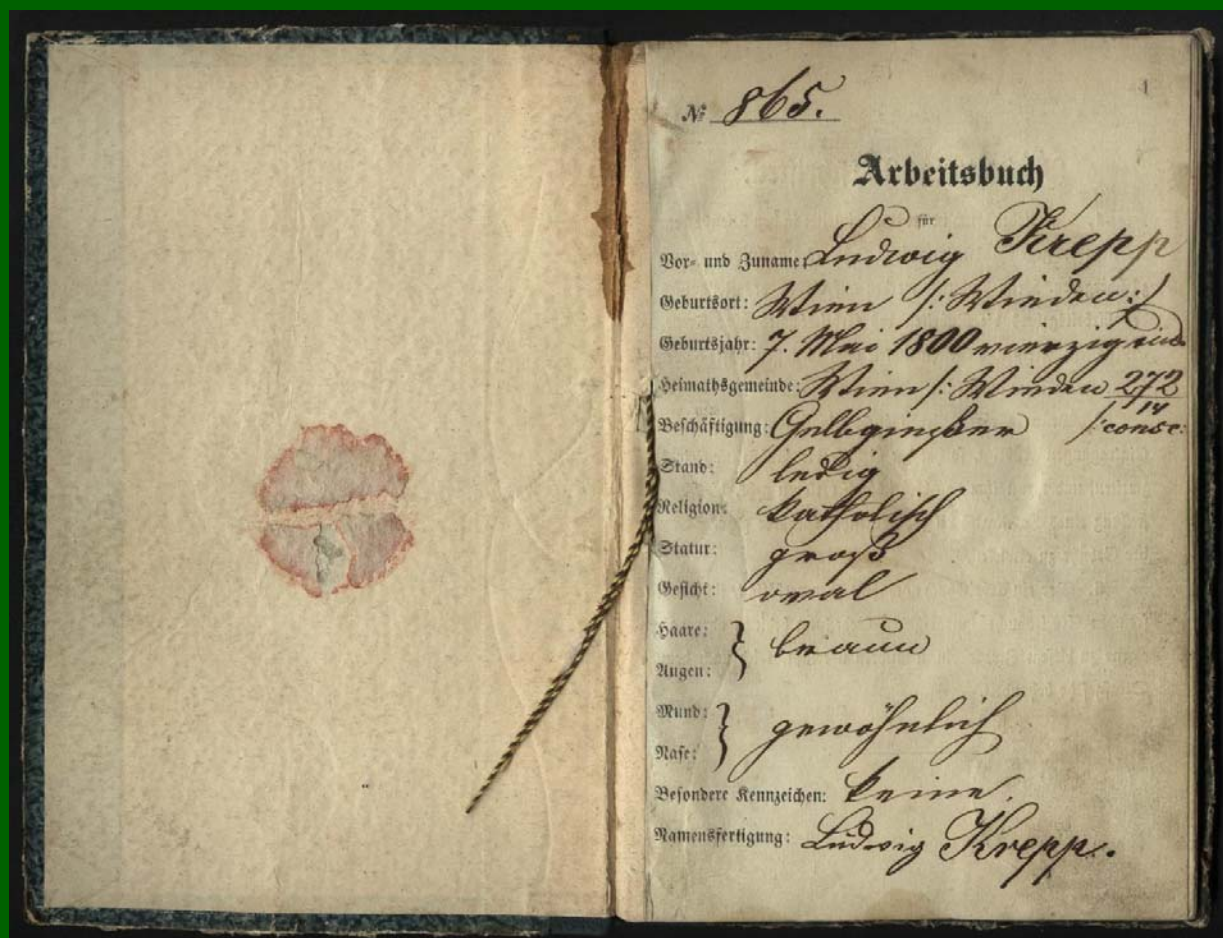 1
№ 865.
Arbeitsbuch
für
Vor- und Zuname: Ludwig Krepp
Geburtsort: Wien /: Wieden :/
Geburtsjahr: 7. Mai 1800 vierzig
Heimathsgemeinde: Wien /: Wieden 272
Beschäftigung: Gelbgießer /: consc:
14
Stand: ledig
Religion: katholisch
Statur: groß
Gesicht: oval
Haare: } braun
Augen:
Mund: } gewöhnlich
Nase:
Besondere Kennzeichen: keine.
Namensfertigung: Ludwig Krepp.